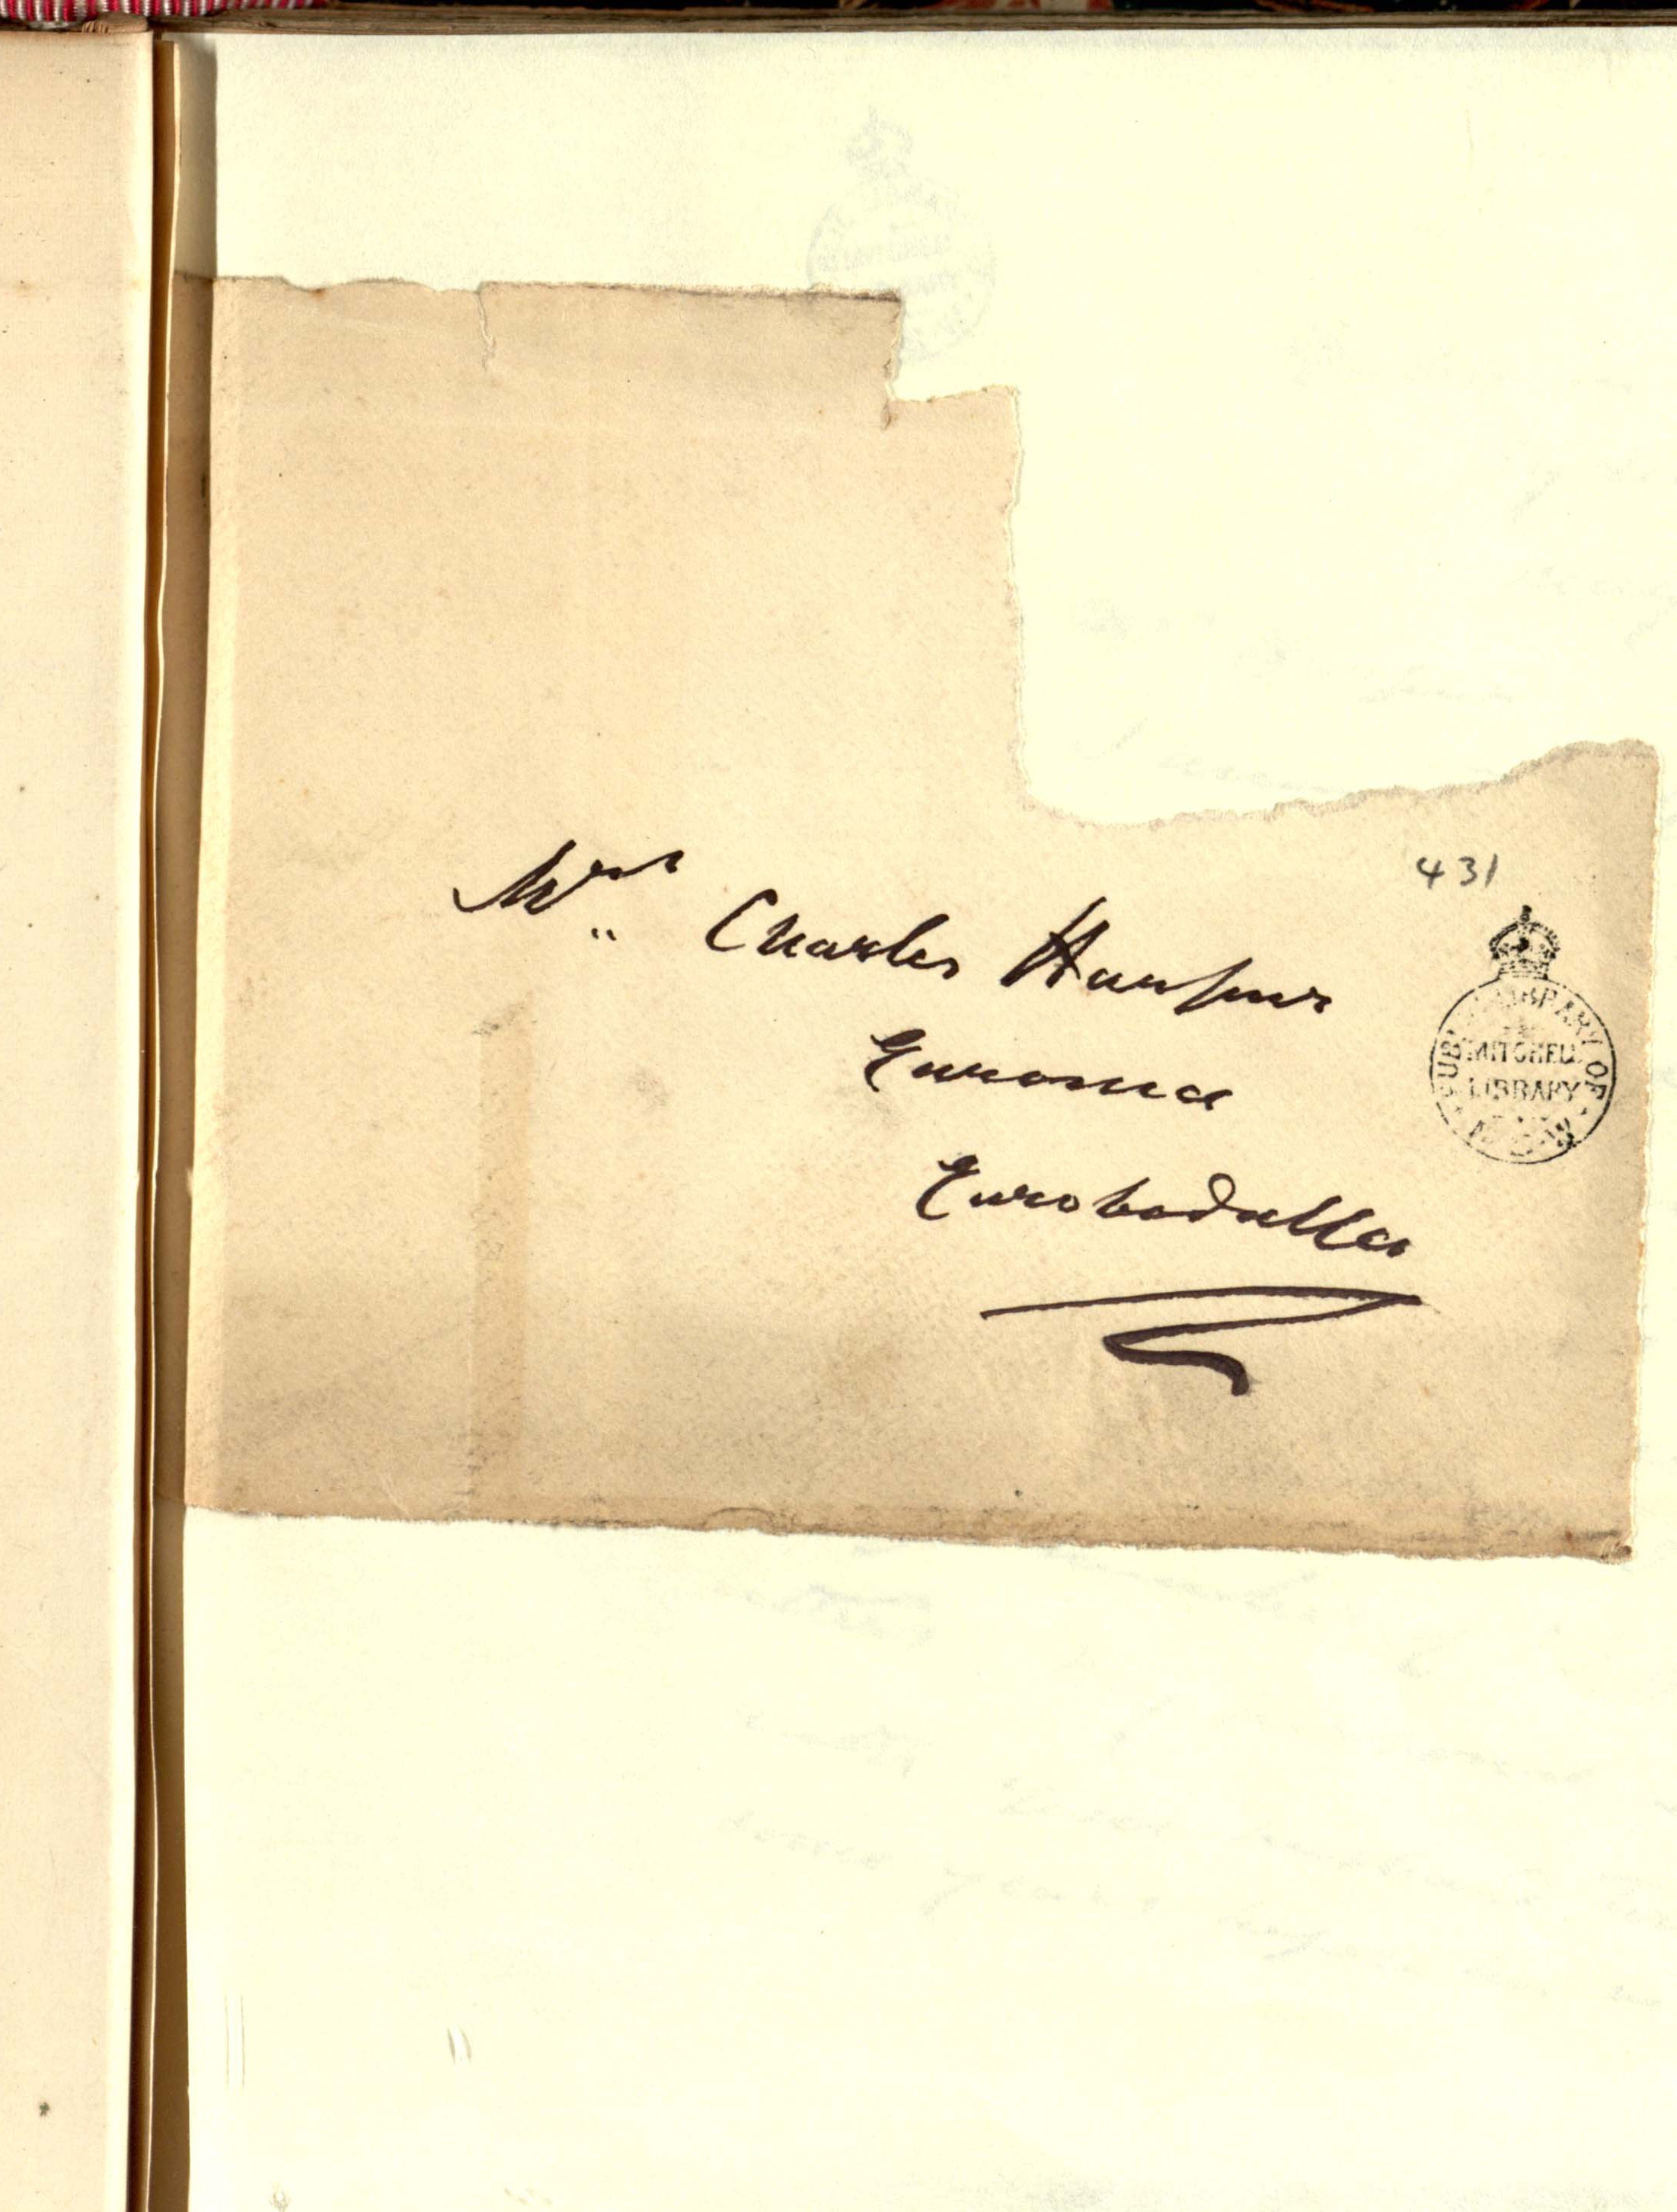 431
Mrs Charles Harpur
Euroma
Eurobodalla
PUBLIC LIBRARY OF N.S.W
MITCHELL
LIBRARY